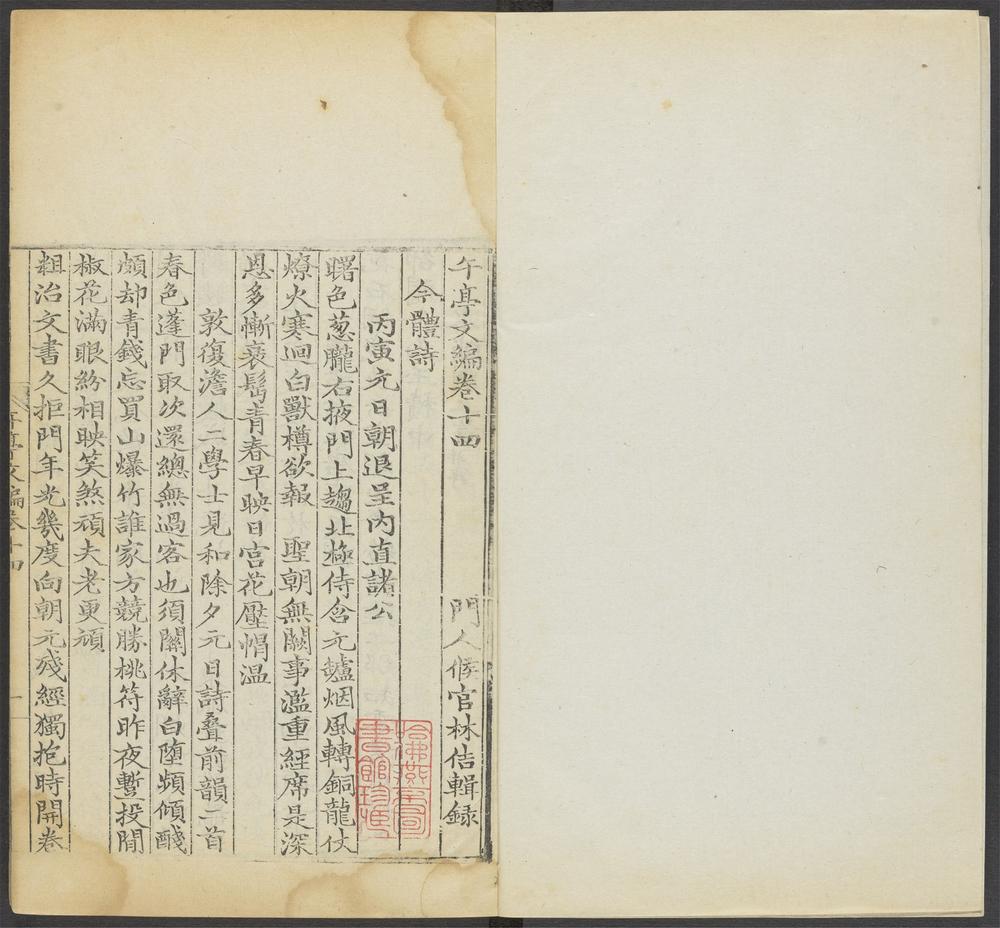 午亭文編卷十四
門人候官林佶輯録
今體詩
丙寅元日朝退呈内直諸公
曙色葱朧右掖門上趨北極侍含元鑪烟風轉銅龍仗
燎火寒迴白獸樽欲報　聖朝無闕事濫重經席是深
恩多慚衰髩青春早映日宫花壓帽温
敦復澹人二學士見和除夕元日詩叠前韻二首
春色蓬門取次還總無過客也須關休辭白墮頻傾醆
頗却青錢忘買山爆竹誰家方競勝桃符昨夜暫投閒
椒花滿眼紛相映笑煞頑夫老更頑
粗治文書久拒門年光幾度向朝元殘經獨抱時開卷
午亭文編卷十四
一
哈佛燕京圖書館珍藏